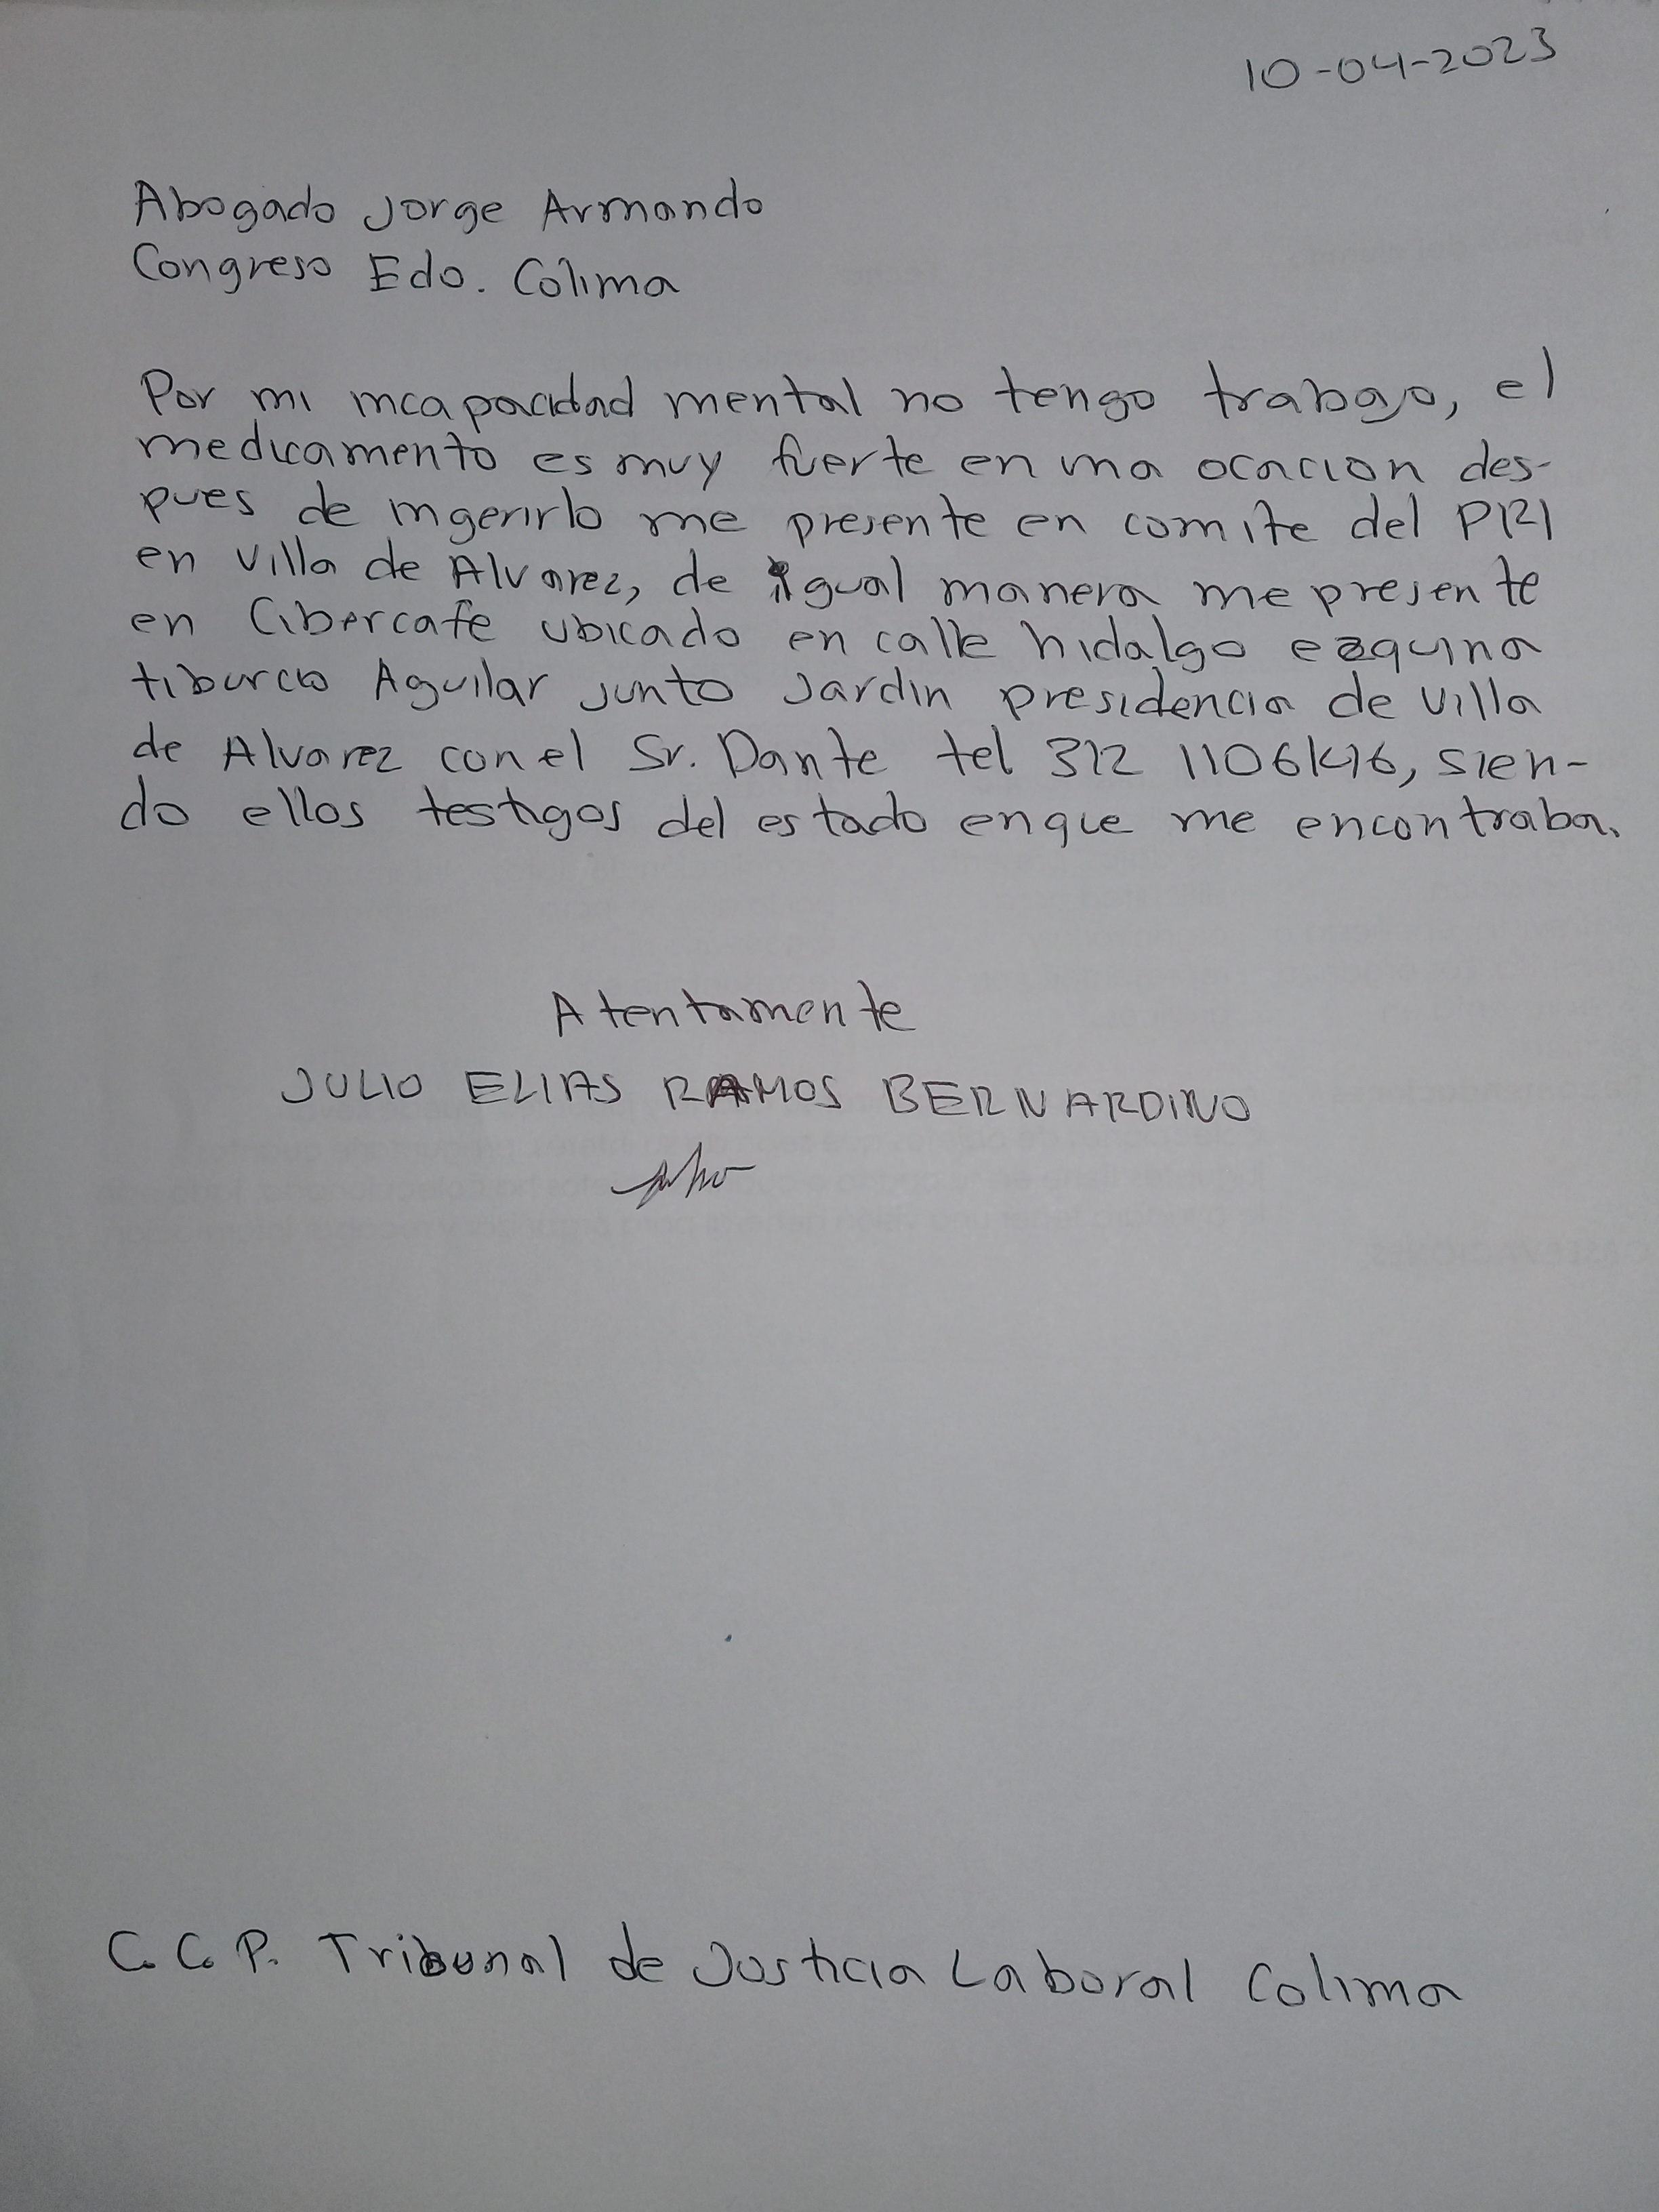 10-04-2023
Abogado Jorge Armando
Congreso Edo. Colima
Por mi incapacidad mental no tengo trabajo, el
medicamento es muy fuerte en una ocacion des-
pues de ingerirlo me presente en comite del PRI
en Villa de Alvarez, de igual manera me presente
en Cibercafe ubicado en calle hidalgo ezquina
tiburcio Aguilar junto Jardin presidencia de Villa
de Alvarez con el Sr. Dante tel 312, sien-
do ellos testigos del estado en que me encontraba.
Atentamente
JULIO ELIAS RAMOS BERNARDINO
C.C.P. Tribunal de Justicia Laboral Colima